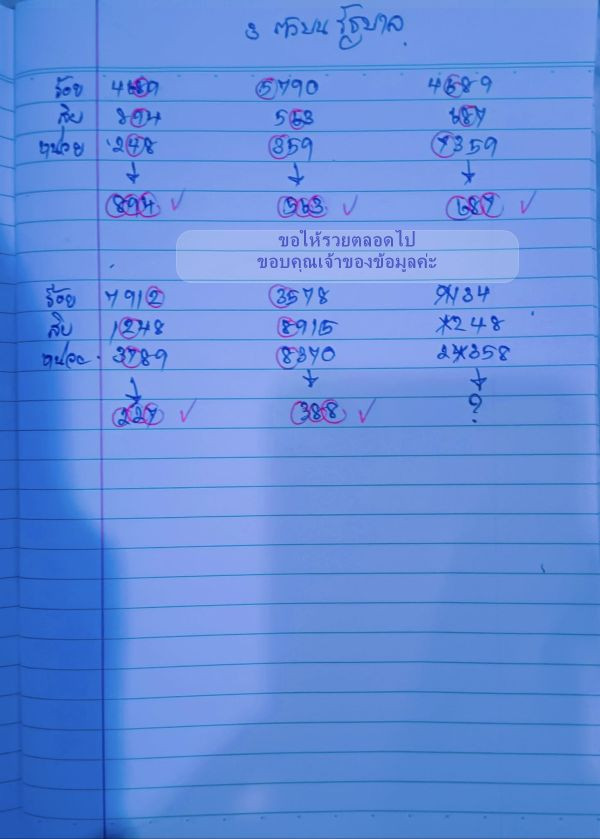 3 ตัวบน รัฐบาล
ร้อย 4689 5790 4689
สิบ 894 563 687
หน่วย 1248 359 7359
↓ ↓ ↓
894 ✓ 563 ✓ 687 ✓
ขอให้รวยตลอดไป
ขอบคุณเจ้าของข้อมูลค่ะ
ร้อย 7912 3578 9134
สิบ 1248 8915 248
หน่วย 3789 8370 358
↓ ↓ ↓
227 ✓ 388 ✓ ?